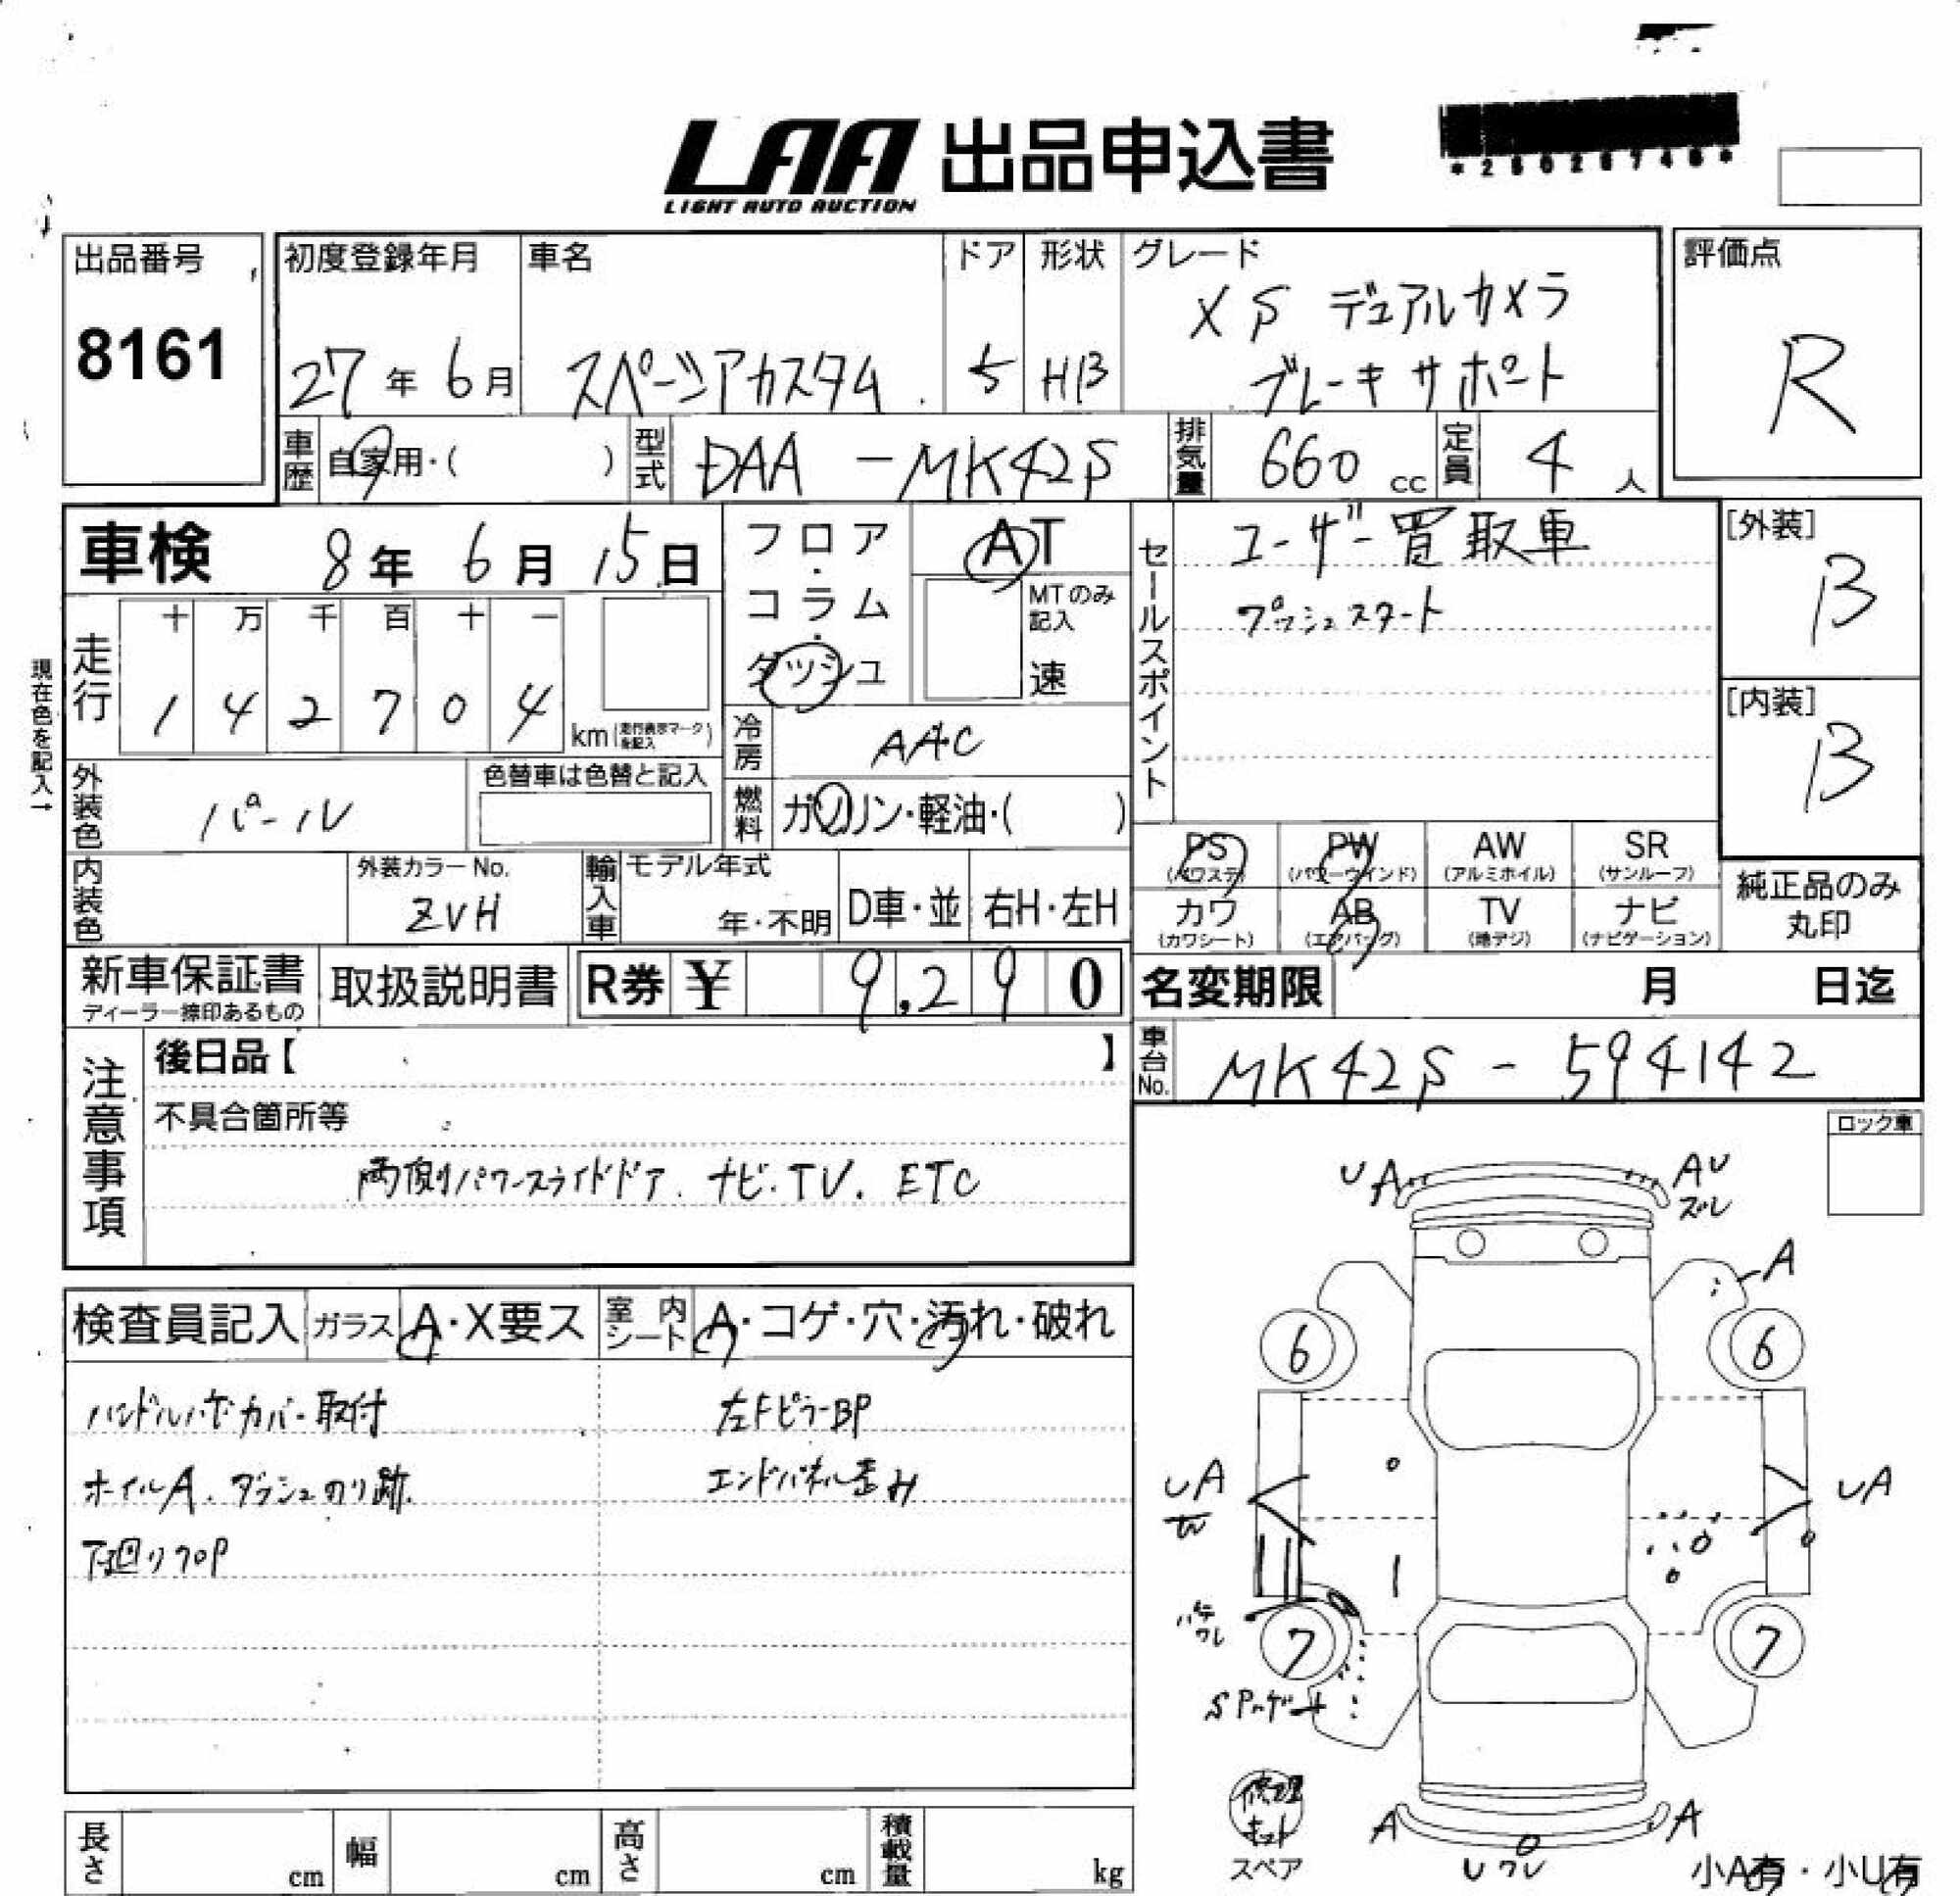 LAA 出品申込書
LIGHT AUTO AUCTION
出品番号
8161
初度登録年月
27年6月
車名
スペーシアカスタム
ドア
5
形状
HB
グレード
XS デュアルカメラ
ブレーキサポート
評価点
R
車歴
自家用・( )
型式
DAA-MK42S
排気量
660 cc
定員
4 人
車検 8年 6月 15日
フロア・コラム・ダッシュ
AT
MTのみ記入
速
セールスポイント
ユーザー買取車
プッシュスタート
[外装]
B
[内装]
B
走行
十 万 千 百 十 一
1 4 2 7 0 4
km(走行表示マークを記入)
現在色を記入→
冷房
AAC
外装色
パール
色替車は色替と記入
燃料
ガソリン・軽油・( )
PS
(パワステ)
PW
(パワーウインド)
AW
(アルミホイル)
SR
(サンルーフ)
内装色
外装カラーNo.
ZVH
輸入車
モデル年式
年・不明
D車・並
右H・左H
カワ
(カワシート)
AB
(エアバッグ)
TV
(地デジ)
ナビ
(ナビゲーション)
純正品のみ
丸印
新車保証書
ディーラー捺印あるもの
取扱説明書
R券 ¥ 9,290
名変期限 月 日迄
注意事項
後日品【 】
不具合箇所等
両側パワースライドドア、ナビ・TV、ETC
車台No.
MK42S-594142
ロック車
検査員記入
ガラス
A・X要ス
室内シート
A・コゲ・穴・汚れ・破れ
左FピラーBP
エンドパネル歪み
ホイルA、ダッシュのり跡
UA
AU
ズレ
A
6
6
UA
UA
7
7
修理
キット
スペア
A
A
Uワレ
小A有・小U有
長さ cm
幅 cm
高さ cm
積載量 kg